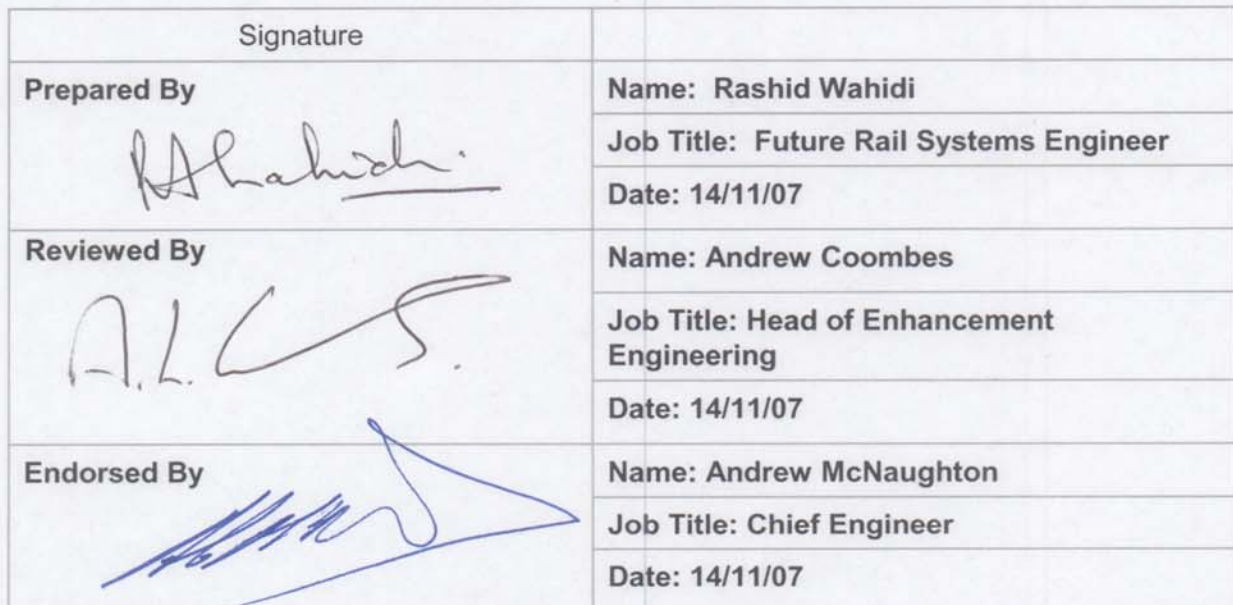 Signature
Prepared By
Name: Rashid Wahidi
Job Title: Future Rail Systems Engineer
Date: 14/11/07
Reviewed By
A.L.
Name: Andrew Coombes
Job Title: Head of Enhancement
Engineering
Date: 14/11/07
Endorsed By
Name: Andrew McNaughton
Job Title: Chief Engineer
Date: 14/11/07